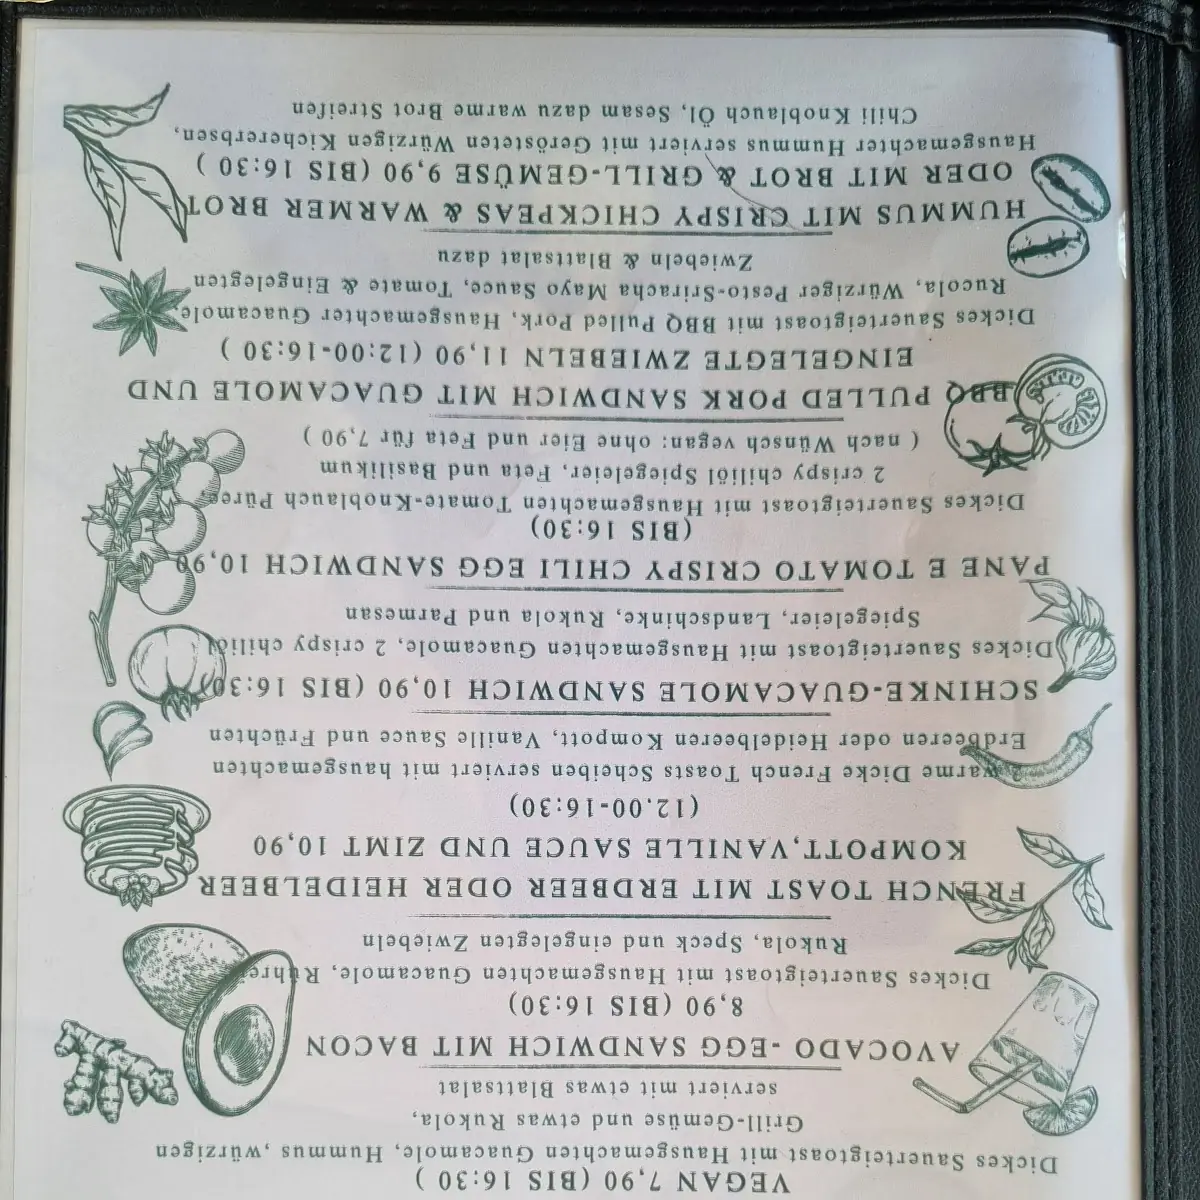 VEGAN 7,90 (BIS 16:30 )
Dickes Sauerteigtoast mit Hausgemachten Guacamole, Hummus ,würzigen
Grill-Gemüse und etwas Rukola,
serviert mit etwas Blattsalat
AVOCADO -EGG SANDWICH MIT BACON
8,90 (BIS 16:30)
Dickes Sauerteigtoast mit Hausgemachten Guacamole, Rührei
Rukola, Speck und eingelegten Zwiebeln
FRENCH TOAST MIT ERDBEER ODER HEIDELBEER
KOMPOTT,VANILLE SAUCE UND ZIMT 10,90
(12.00-16:30)
2 warme Dicke French Toasts Scheiben serviert mit hausgemachten
Erdbeeren oder Heidelbeeren Kompott, Vanille Sauce und Früchten
SCHINKE-GUACAMOLE SANDWICH 10,90 (BIS 16:30)
Dickes Sauerteigtoast mit Hausgemachten Guacamole, 2 crispy chiliöl
Spiegeleier, Landschinke, Rukola und Parmesan
PANE E TOMATO CRISPY CHILI EGG SANDWICH 10,90
(BIS 16:30)
Dickes Sauerteigtoast mit Hausgemachten Tomate-Knoblauch Püree,
2 crispy chiliöl Spiegeleier, Feta und Basilikum
( nach Wünsch vegan: ohne Eier und Feta für 7,90 )
BBQ PULLED PORK SANDWICH MIT GUACAMOLE UND
EINGELEGTE ZWIEBELN 11,90 (12:00-16:30 )
Dickes Sauerteigtoast mit BBQ Pulled Pork, Hausgemachter Guacamole,
Rucola, Würziger Pesto-Sriracha Mayo Sauce, Tomate & Eingelegten
Zwiebeln & Blattsalat dazu
HUMMUS MIT CRISPY CHICKPEAS & WARMER BROT
ODER MIT BROT & GRILL-GEMÜSE 9,90 (BIS 16:30 )
Hausgemachter Hummus serviert mit Gerösteten Würzigen Kichererbsen,
Chili Knoblauch Öl, Sesam dazu warme Brot Streifen